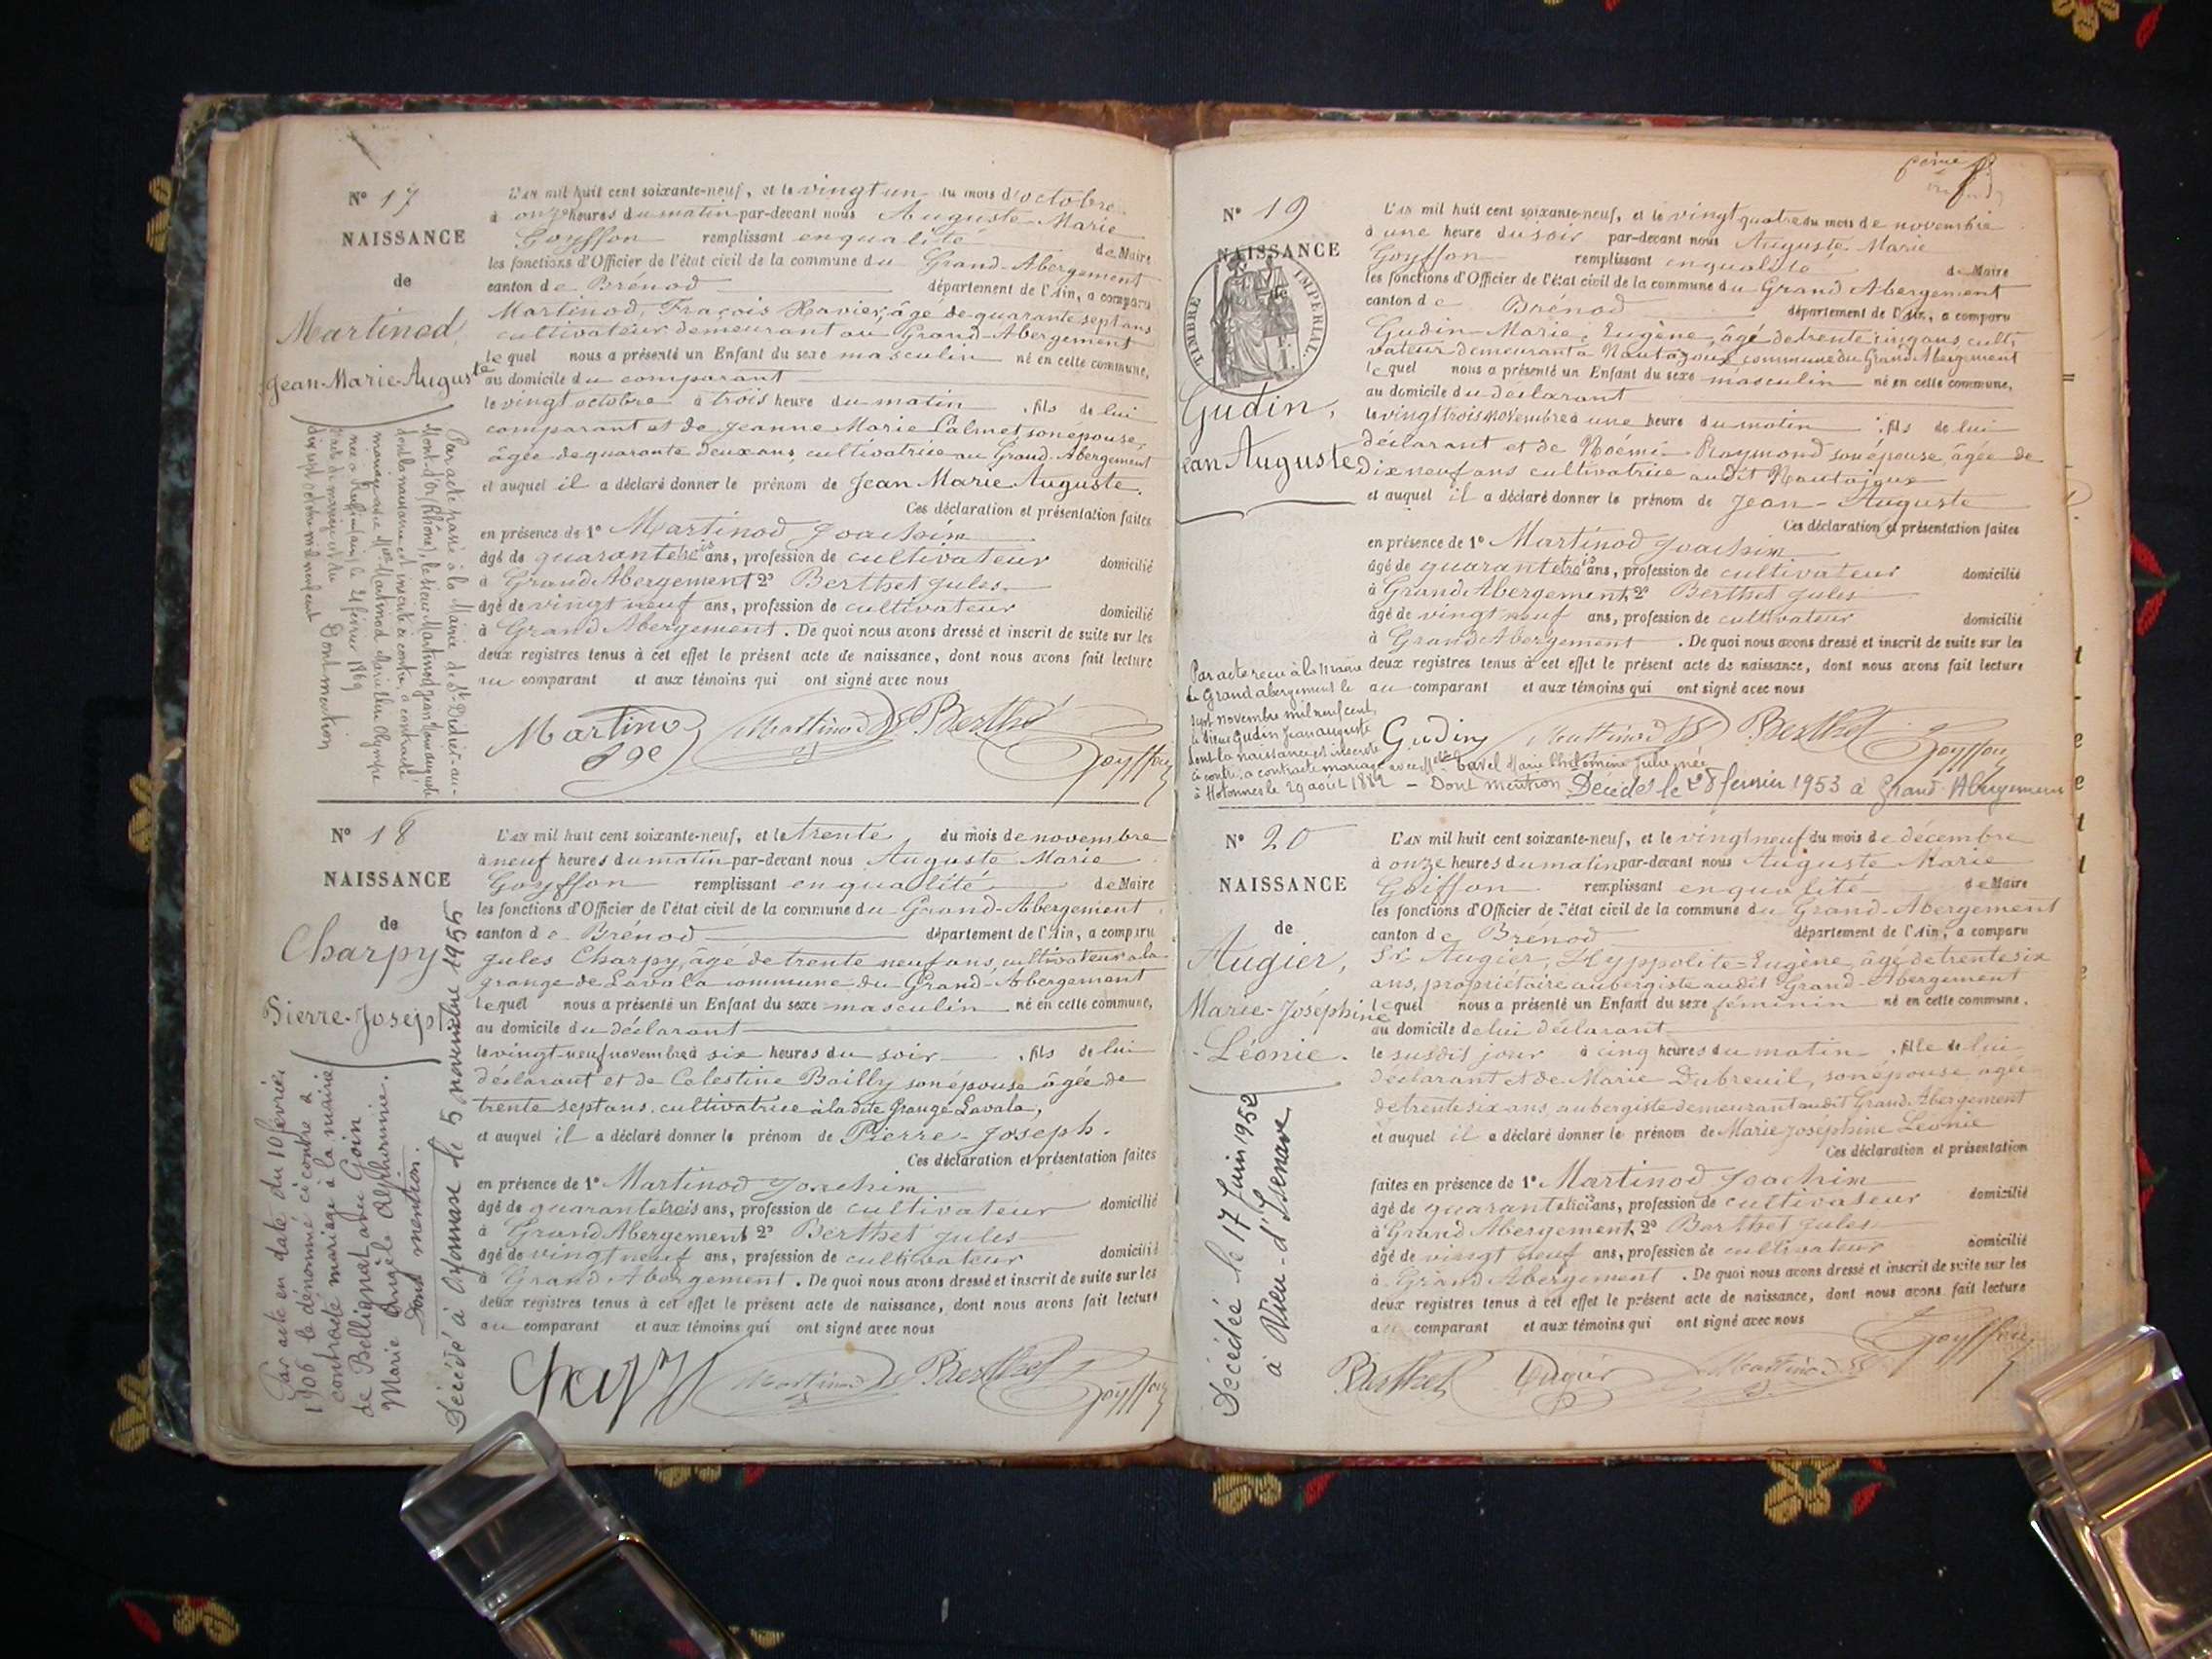 N° 17
NAISSANCE
de
Martinod
Jean-Marie-Auguste
Par acte passé à la Mairie de St Didier-au-
Mont-d'or (Rhône), le sieur Martinod Jean Marie Auguste
dont la naissance est inscrite ci contre, a contracté
mariage avec Melle Martinod Marie Olympe
née à Ruffieu (Ain) le 21 février 1869
Dont mention
L'AN mil huit cent soixante-neuf, et le vingt un du mois d'octobre
à onze heures du matin par-devant nous Auguste Marie
Goyffon remplissant en qualité de Maire
les fonctions d'Officier de l'état civil de la commune du Grand-Abergement
canton de Brénod département de l'Ain, a comparu
Martinod, Fraçois Xavier, âgé de quarante sept ans
cultivateur demeurant au Grand-Abergement
lequel nous a présenté un Enfant du sexe masculin né en cette commune,
au domicile du comparant
le vingt octobre à trois heure du matin , fils de lui
comparant et de Jeanne Marie Calmet son épouse,
âgée de quarante deux ans, cultivatrice au Grand-Abergement
et auquel il a déclaré donner le prénom de Jean Marie Auguste.
Ces déclaration et présentation faites
en présence de 1° Martinod Joachim
âgé de quarante trois ans, profession de cultivateur domicilié
à Grand Abergement 2° Berthet Jules
âgé de vingt neuf ans, profession de cultivateur domicilié
à Grand Abergement . De quoi nous avons dressé et inscrit de suite sur les
deux registres tenus à cet effet le présent acte de naissance, dont nous avons fait lecture
au comparant et aux témoins qui ont signé avec nous
Martino Martinod Berthe Goyffon
N° 18
NAISSANCE
de
Charpy
Pierre-Joseph
Par acte en date du 10 février
1906 le dénommé ci contre a
contracté mariage à la mairie
de Bellignat avec Goin
Marie Angèle Alphonsine.
Dont mention.
Décédé à Oyonnax le 5 novembre 1955
L'AN mil huit cent soixante-neuf, et le trente du mois de novembre
à neuf heures du matin par-devant nous Auguste Marie
Goyffon remplissant en qualité de Maire
les fonctions d'Officier de l'état civil de la commune du Grand-Abergement
canton de Brénod département de l'Ain, a comparu
Jules Charpy, âgé de trente neuf ans, cultivateur à la
grange de Lavala commune du Grand-Abergement
lequel nous a présenté un Enfant du sexe masculin né en cette commune,
au domicile du déclarant
le vingt-neuf novembre à six heures du soir , fils de lui
déclarant et de Celestine Bailly son épouse âgée de
trente sept ans, cultivatrice à la dite Grange Lavala,
et auquel il a déclaré donner le prénom de Pierre-Joseph.
Ces déclaration et présentation faites
en présence de 1° Martinod Joachim
âgé de quarante trois ans, profession de cultivateur domicilié
à Grand Abergement 2° Berthet Jules
âgé de vingt neuf ans, profession de cultivateur domicilié
à Grand Abergement . De quoi nous avons dressé et inscrit de suite sur les
deux registres tenus à cet effet le présent acte de naissance, dont nous avons fait lecture
au comparant et aux témoins qui ont signé avec nous
Charpy Martinod Berthet Goyffon
N° 19
NAISSANCE
de
TIMBRE IMPERIAL
Gudin,
Jean Auguste
Par acte reçu à la mairie
de Grand abergement le
sept novembre mil neuf cent
le sieur Gudin Jean auguste
dont la naissance est inscrite
ci contre, a contracté mariage avec Melle Tavel Marie Philomène Julie née
à Hotonnes le 29 août 1882 - Dont mention Décédé le 28 février 1953 à Grand Abergement
L'AN mil huit cent soixante-neuf, et le vingt quatre du mois de novembre
à une heure du soir par-devant nous Auguste Marie
Goyffon remplissant en qualité de Maire
les fonctions d'Officier de l'état civil de la commune du Grand Abergement
canton de Brénod département de l'Ain, a comparu
Gudin-Marie, Eugène, âgé de trente cinq ans, culti
vateur demeurant à commune du Grand Abergement
lequel nous a présenté un Enfant du sexe masculin né en cette commune,
au domicile du déclarant
le vingt trois novembre à une heure du matin , fils de lui
déclarant et de Noémi Raymond son épouse, âgée de
dix neuf ans cultivatrice audit
et auquel il a déclaré donner le prénom de Jean-Auguste
Ces déclaration et présentation faites
en présence de 1° Martinod Joachim
âgé de quarante trois ans, profession de cultivateur domicilié
à Grand Abergement 2° Berthet Jules
âgé de vingt neuf ans, profession de cultivateur domicilié
à Grand Abergement . De quoi nous avons dressé et inscrit de suite sur les
deux registres tenus à cet effet le présent acte de naissance, dont nous avons fait lecture
au comparant et aux témoins qui ont signé avec nous
Gudin Martinod Berthet Goyffon
N° 20
NAISSANCE
de
Augier,
Marie-Joséphine
-Léonie.
Décédée le 17 Juin 1952
à Vieu-d'Izenave
L'AN mil huit cent soixante-neuf, et le vingt neuf du mois de décembre
à onze heures du matin par-devant nous Auguste Marie
Goiffon remplissant en qualité de Maire
les fonctions d'Officier de l'état civil de la commune du Grand-Abergement
canton de Brénod département de l'Ain, a comparu
Sr Augier, Hyppolite-Eugène, âgé de trente six
ans, propriétaire aubergiste audit Grand-Abergement
lequel nous a présenté un Enfant du sexe féminin né en cette commune,
au domicile de lui déclarant
le susdit jour à cinq heures du matin , fille de lui
déclarant et de Marie Dubreuil, son épouse, agée
de trente six ans, aubergiste demeurant audit Grand Abergement
et auquel il a déclaré donner le prénom de Marie Joséphine Léonie
Ces déclaration et présentation
faites en présence de 1° Martinod Joachim
âgé de quarante trois ans, profession de cultivateur domicilié
à Grand Abergement 2° Berthet Jules
âgé de vingt neuf ans, profession de cultivateur domicilié
à Grand Abergement . De quoi nous avons dressé et inscrit de suite sur les
deux registres tenus à cet effet le présent acte de naissance, dont nous avons fait lecture
au comparant et aux témoins qui ont signé avec nous
Berthet Augier Martinod Goyffon